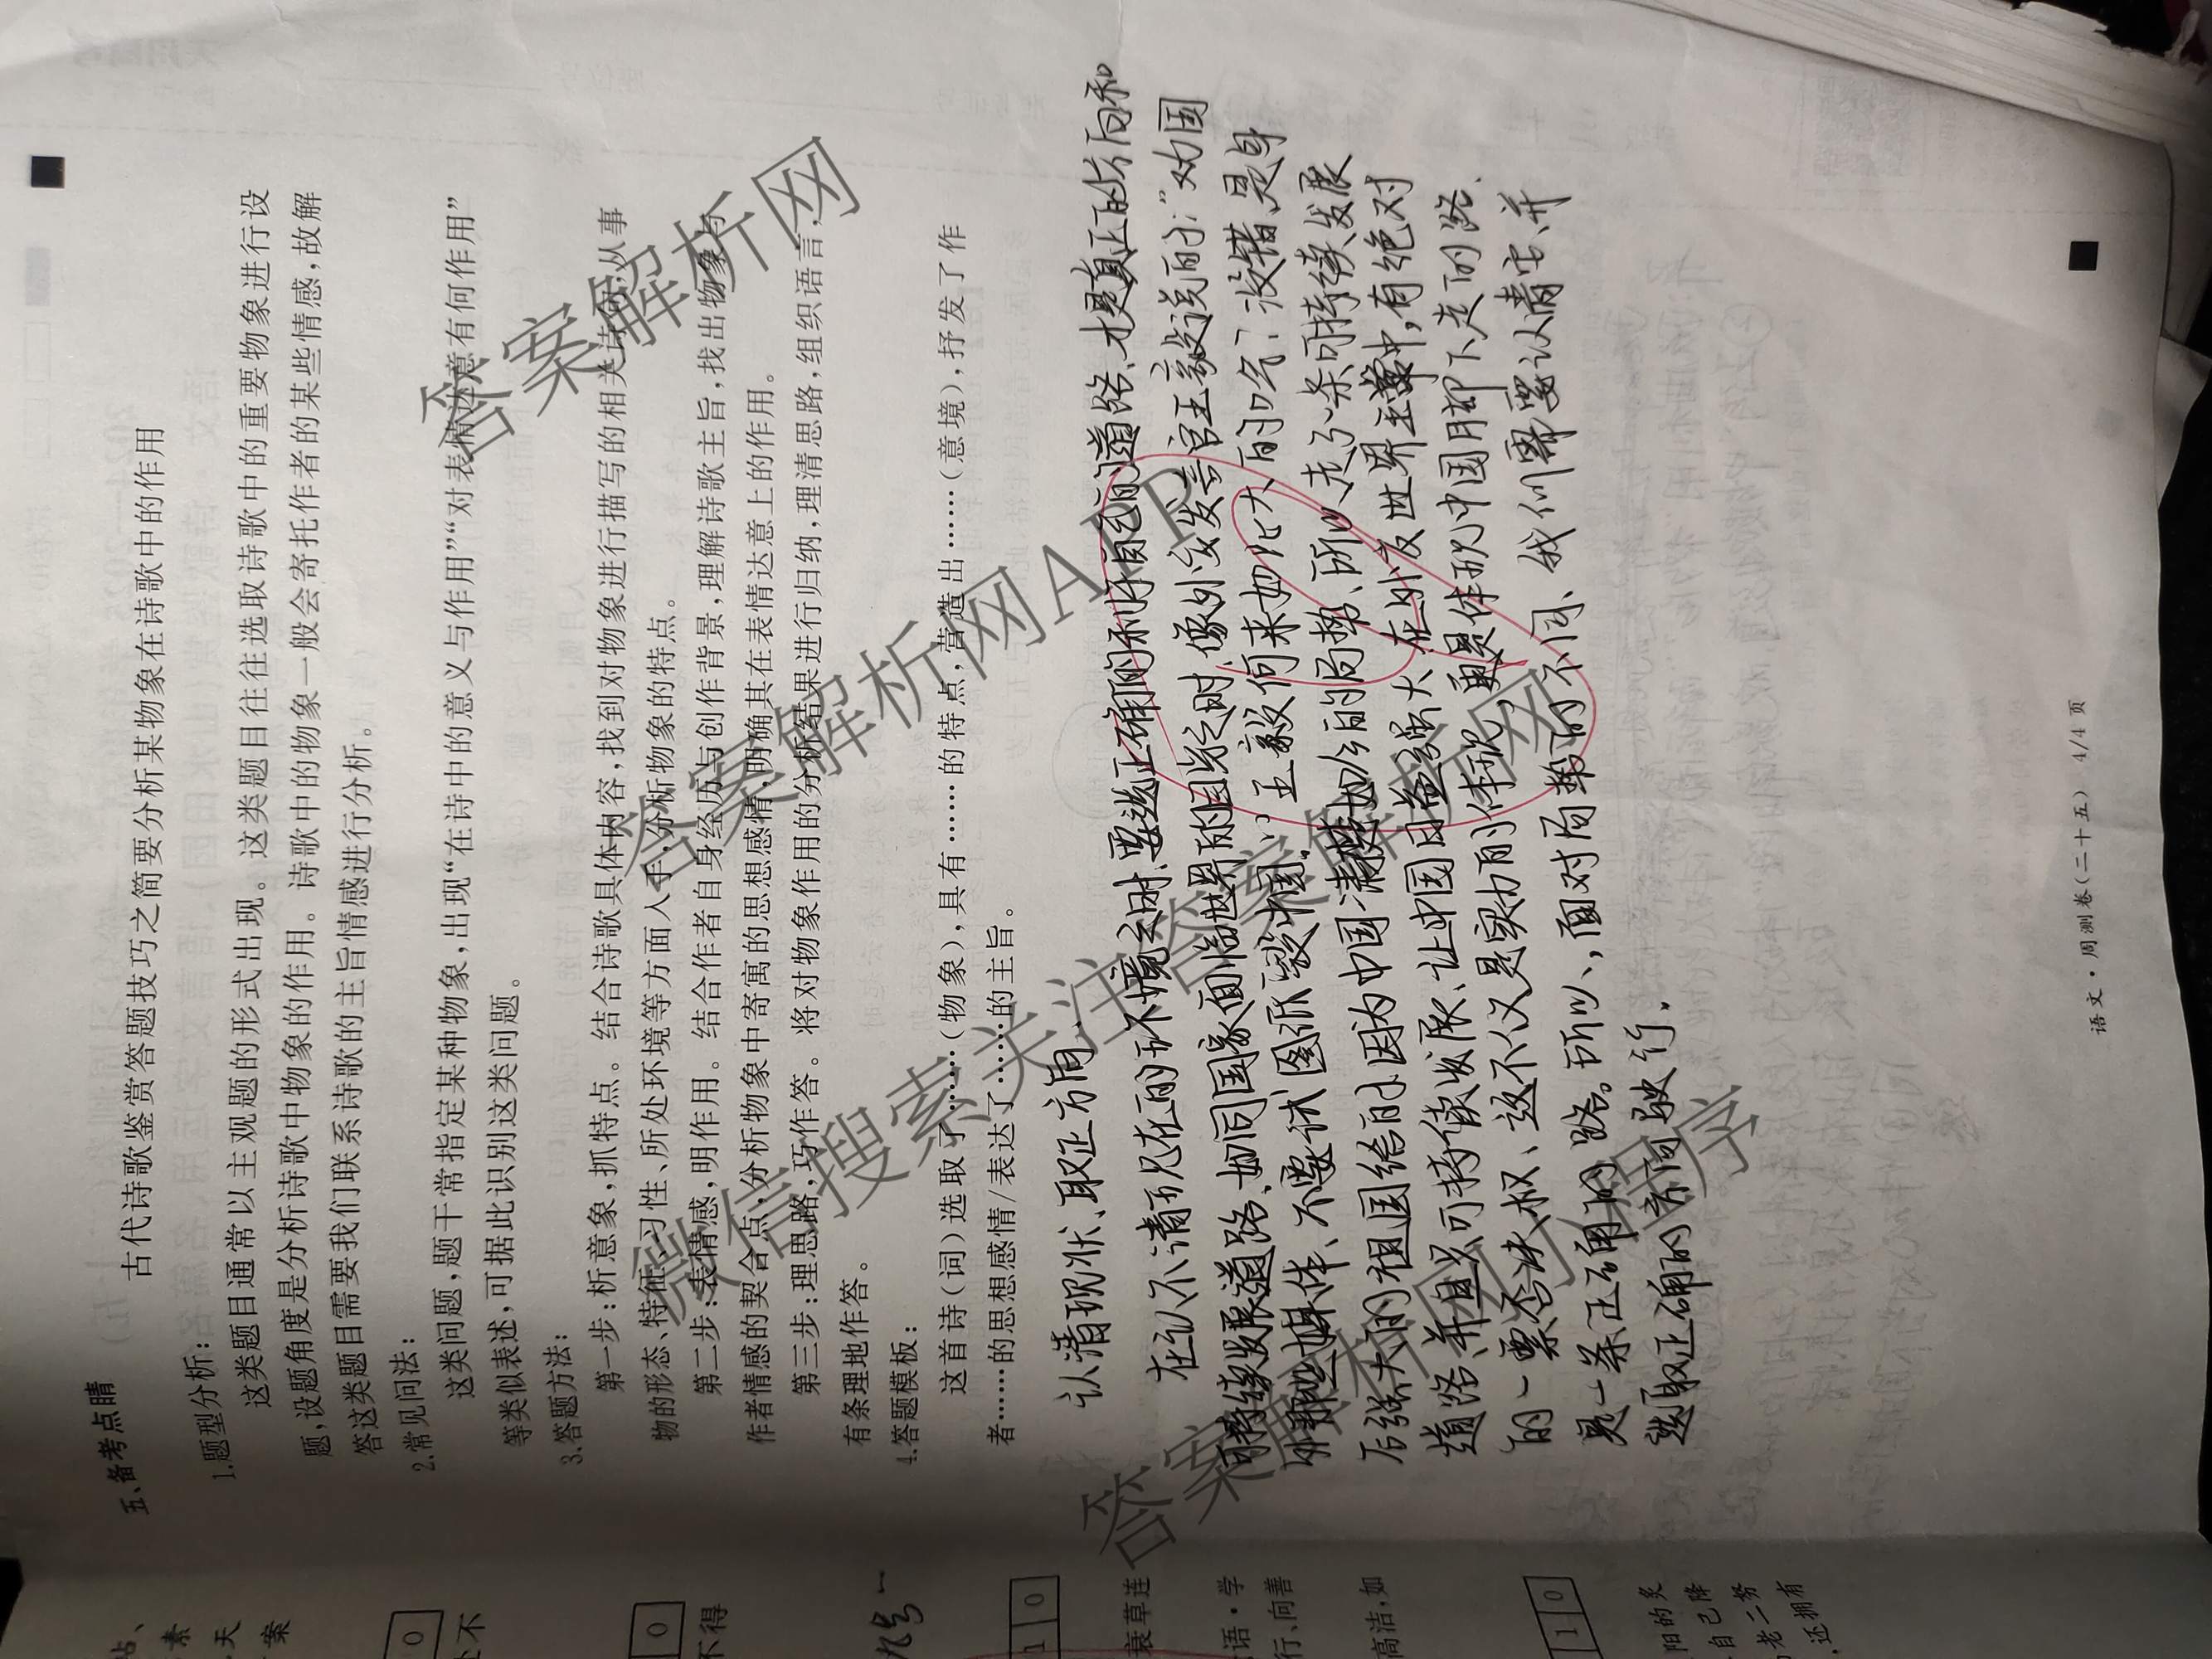 五、备考点睛
古代诗歌鉴赏答题技巧之简要分析某物象在诗歌中的作用
1.题型分析：
这类题目通常以主观题的形式出现。这类题目往往选取诗歌中的重要物象进行设
题,设题角度是分析诗歌中物象的作用。诗歌中的物象一般会寄托作者的某些情感,故解
答这类题目需要我们联系诗歌的主旨情感进行分析。
2.常见问法：
这类问题,题干常指定某种物象,出现“在诗中的意义与作用”“对表情达意有何作用”
等类似表述,可据此识别这类问题。
3.答题方法：
第一步:析意象,抓特点。结合诗歌具体内容,找到对物象进行描写的相关诗句,从事
物的形态、特征、习性、所处环境等方面入手,分析物象的特点。
第二步:表情感,明作用。结合作者自身经历与创作背景,理解诗歌主旨,找出物象与
作者情感的契合点,分析物象中寄寓的思想感情,明确其在表情达意上的作用。
第三步:理思路,巧作答。将对物象作用的分析结果进行归纳,理清思路,组织语言,
有条理地作答。
4.答题模板：
这首诗(词)选取了……(物象),具有……的特点,营造出……(意境),抒发了作
者……的思想感情/表达了……的主旨。
认清现状、取正方向
在认不清而况在的环境之时、要选正确的和好自己的道路、才是真正的方向和
可持续发展道路、如同国家面临世界的困难之时,像外交发言官王毅说的:“劝国
外那些媒体、不要试图派毁中国。”王毅何来如此大的口气?没错、是身
后强大的祖国给的、因为中国清楚如今的局势、所以走了一条可持续发展
道路、并且只可持续发展、让中国日益强大、在外交世界主掌中,有绝对
的一票否决权、这不仅又是实力的体现,更是体现中国脚下走的路、
是一条正确的路。所以,面对局势的不同、我们需要认清它、并
选取正确的方向驶行.
语文·周测卷(二十五) 4/4页
答案解析网
答案解析网APP
微信搜索关注答案解析网
答案解析网小程序
0
不得
0
衰草连
1 0
语·学
行、向善
高洁,如
1 0
阳的炙
自己降
老二努
,还拥有